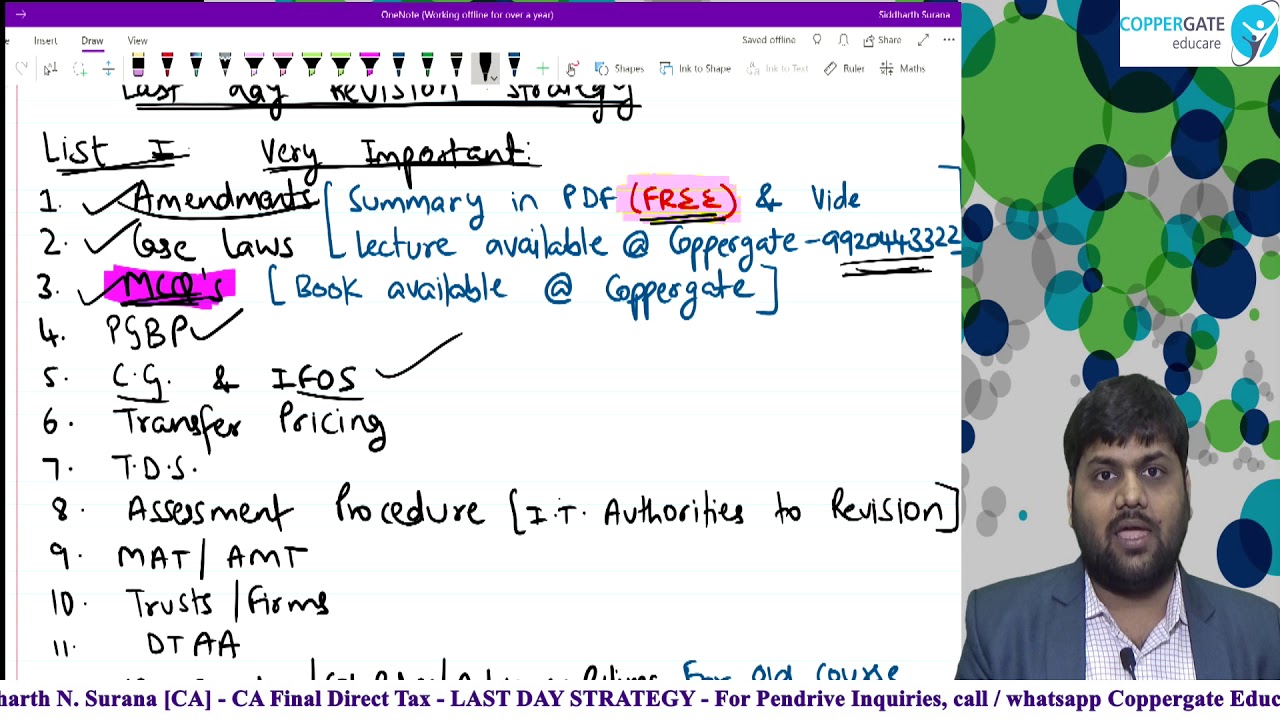 OneNote (Working offline for over a year)
Siddharth Surana
COPPERGATE
educare
Insert Draw View
Saved offline
Share
Shapes
Ink to Shape
Ink to Text
Ruler
Maths
Last day Revision strategy
List I Very Important:
1. Amendments [Summary in PDF (FREE) & Vide
2. Case Laws Lecture available @ Coppergate - 9920443322
3. MCQ's [Book available @ Coppergate]
4. PGBP
5. C.G. & IFOS
6. Transfer Pricing
7. T.D.S.
8. Assessment Procedure [I.T. Authorities to Revision]
9. MAT/AMT
10. Trusts/Firms
11. DTAA
For old course
harth N. Surana [CA] - CA Final Direct Tax - LAST DAY STRATEGY - For Pendrive Inquiries, call / whatsapp Coppergate Educ